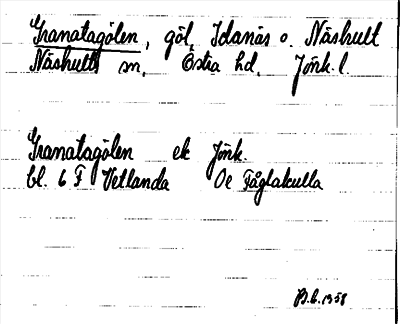 Granatagölen, göl, Idanäs o. Näshult
Näshults sn, Östra hd, Jönk. l.
Granatagölen ek Jönk.
bl. 6 F Vetlanda Oe Fåglakulla
B.L. 1958